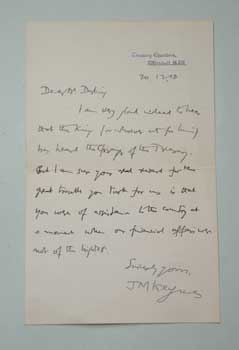 Treasury Chambers,
Whitehall, S.W.
20.12.
Dear Mr Darling
I am very glad indeed to hear
that the King
has heard the of the Treasury.
But I am sure your real reward for the
great trouble you took for us is that
you were of assistance to the country at
a moment when our financial affairs were
not of the
Sincerely yours,
JM Keynes